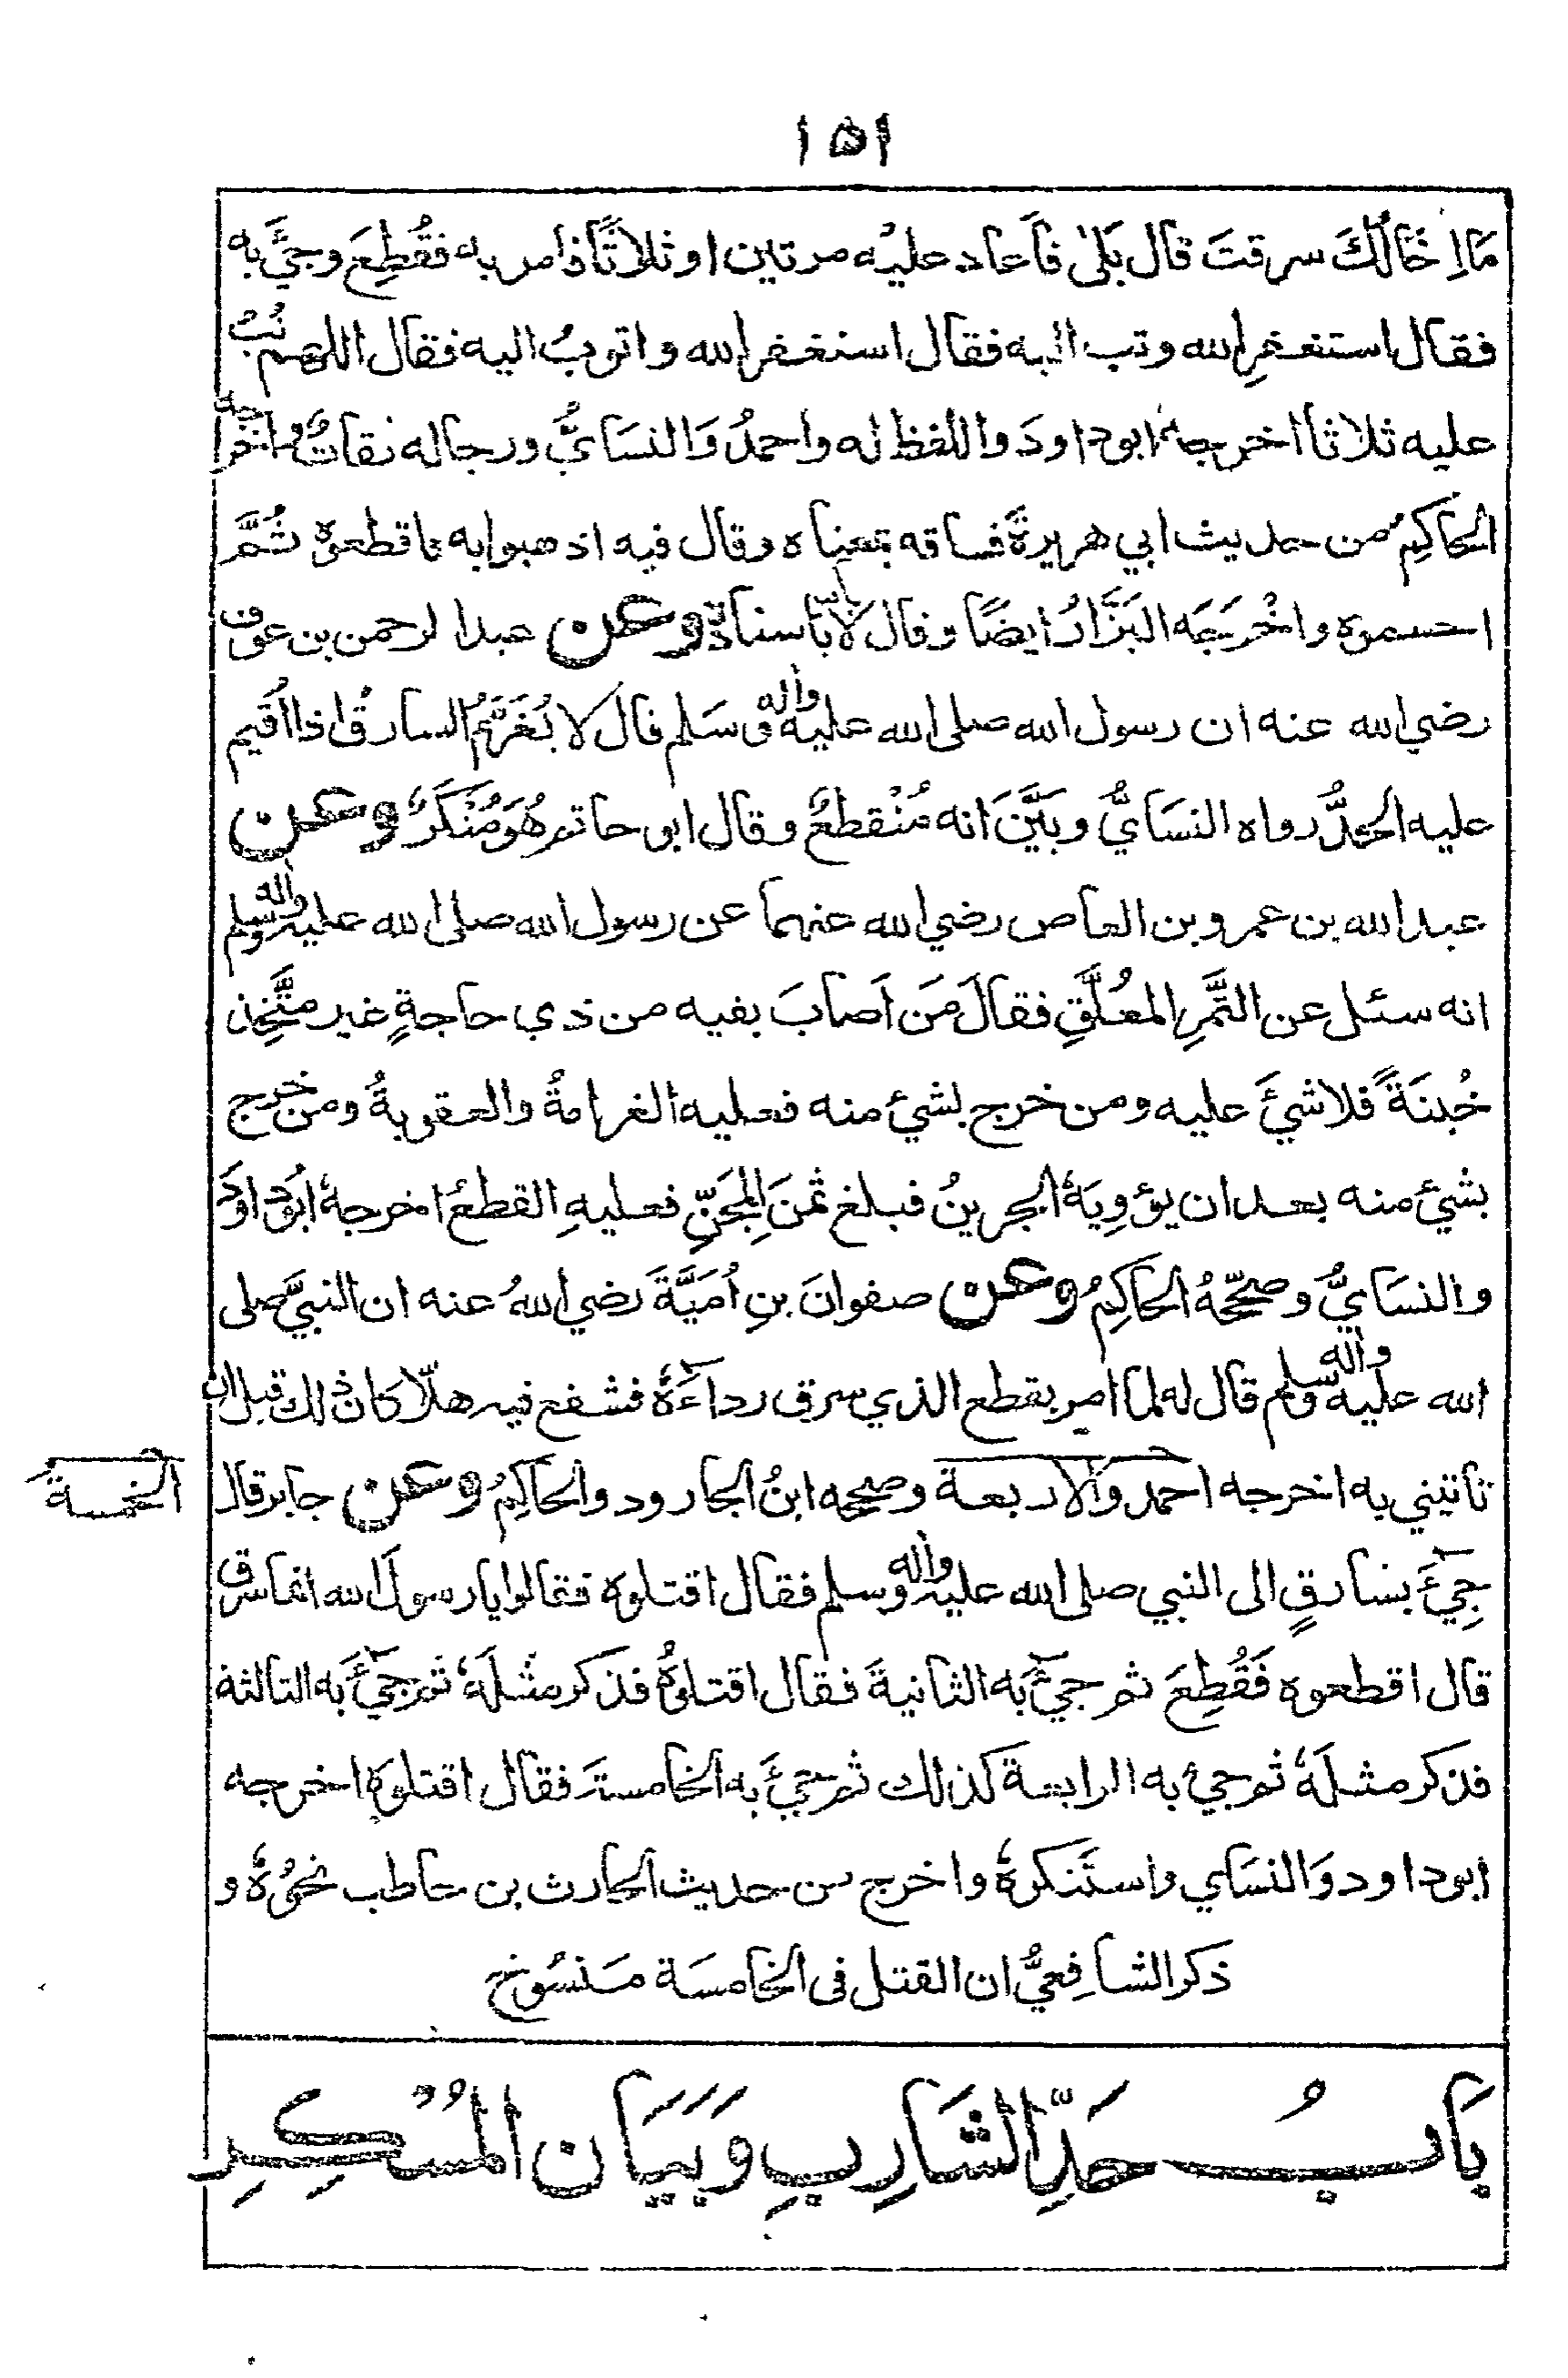 ١٥١
مَا اِخَالُكَ سرقتَ قال بَلىٰ فَاَعاد عليْه مرتين او ثلاثًا فامر به فقُطِعَ وجئَ به
فقال استغفرِ الله وتب اليه فقال استغفر الله واتوبُ اليه فقال اللهم تُبْ
عليه ثلاثا اخرجه ابوداودَ واللفظ له واحمدُ وَالنسَايُّ ورجاله ثقاتٌ واخرجه
الحاكِمُ من حديث ابي هريرةَ فساقه بمعناه وقال فيه اذهبوا به فاقطعوه ثُمَّ
احسموه واخْرَجَه البَزَّارُ ايضًا وقال لا بأس باسناده وعن عبد الرحمن بن عوف
رضي الله عنه ان رسول الله صلى الله عليه واله وسَلم قال لا يُغَرَّمُ السارقُ اذا اُقيم
عليه الحدُّ رواه النسَايُّ وبَيَّنَ انه مُنْقطعٌ وقال ابو حاتم هُوَ مُنْكَرٌ وعن
عبد الله بن عمرو بن العاص رضي الله عنهما عن رسول الله صلى الله عليه واله وسلم
انه سئل عن التَّمْرِ المعُلَّقِ فقالَ مَن اَصابَ بفيه من ذي حاجةٍ غير متَّخِذ
خُبنَةً فلا شئَ عليه ومن خرج بشئ منه فعليه الغرامةُ والعقوبةُ ومن خرج
بشئ منه بعد ان يؤوِيَهُ الجرينُ فبلغ ثمنَ المِجَنِّ فعليهِ القطعُ اخرجهُ ابُوداودَ
والنسَايُّ وصحّحهُ الحاكِمُ وعن صفوانَ بنِ اُمَيَّةَ رضي اللهُ عنه ان النبيَّ صلى
الله عليه واله وسلم قال له لما امر بقطع الذي سرق رداءَهُ فشفع فيه هلّا كان ذلك قبل ان
تاتيني به اخرجه احمد والاربعة وصححه ابنُ الجارود والحاكِمُ وعن جابر قال
الخمسة
جِئَ بسارقٍ الى النبي صلى الله عليه واله وسلم فقال اقتلوه فقالوا يا رسولَ الله انما سرق
قال اقطعوه فَقُطِعَ ثم جئَ به الثانيةَ فقال اقتلوهُ فذكر مثلَهُ ثم جئَ به الثالثة
فذكر مثلَهُ ثم جئ به الرابعة كذلك ثم جئَ به الخامسة فقال اقتلوه اخرجه
ابوداود وَالنسَاي واستَنكرهُ واخرج من حديث الحارث بن حاطب نحوُهُ و
ذكر الشافِعيُّ ان القتل فى الخامسَة مَنسُوخ
بَابُ حَدِّ الشَّارِبِ وَبَيَانِ المُسْكِرِ